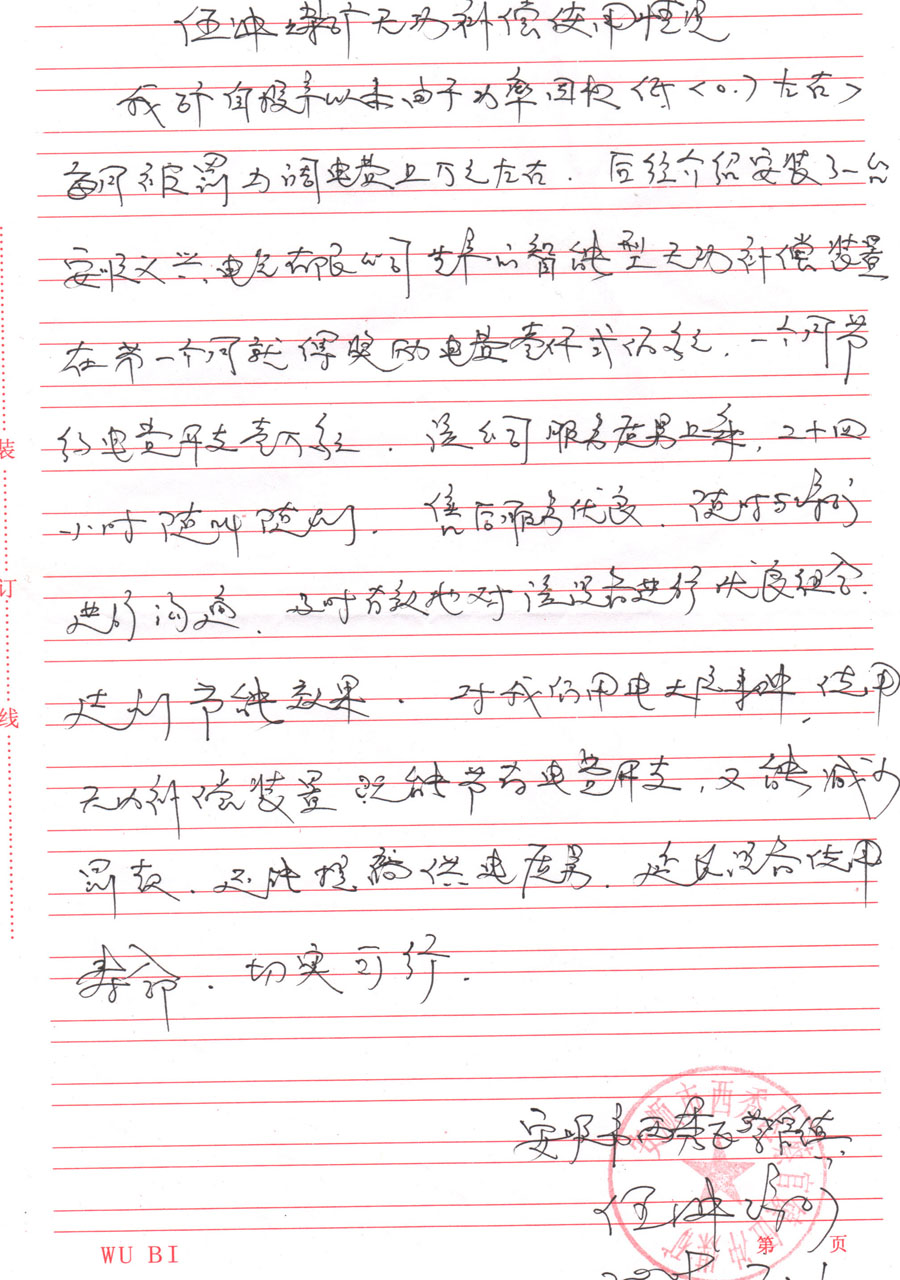 伍冲煤矿无功补偿使用情况
我矿自投产以来由于功率因数低<0.7左右>
每月被罚力调电费上万元左右.后经介绍安装了一台
安顺义兴电气有限公司生产的智能型无功补偿装置
在第一个月就得奖励电费壹仟弍佰多元.一个月节
约电费开支壹万多元.该公司服务质量上乘,二十四
小时随叫随到.售后服务优良.随时与我矿
进行沟通.及时有效地对该设备进行优良组合.
达到节能效果.对我们用电大户来讲,使用
无功补偿装置既能节约电费开支,又能减少
罚款.还能提高供电质量.延长设备使用
寿命.切实可行.
安顺市西秀区 管镇
伍冲煤矿
安顺市西秀区 官镇伍冲煤矿
装
订
线
WU BI
第 页